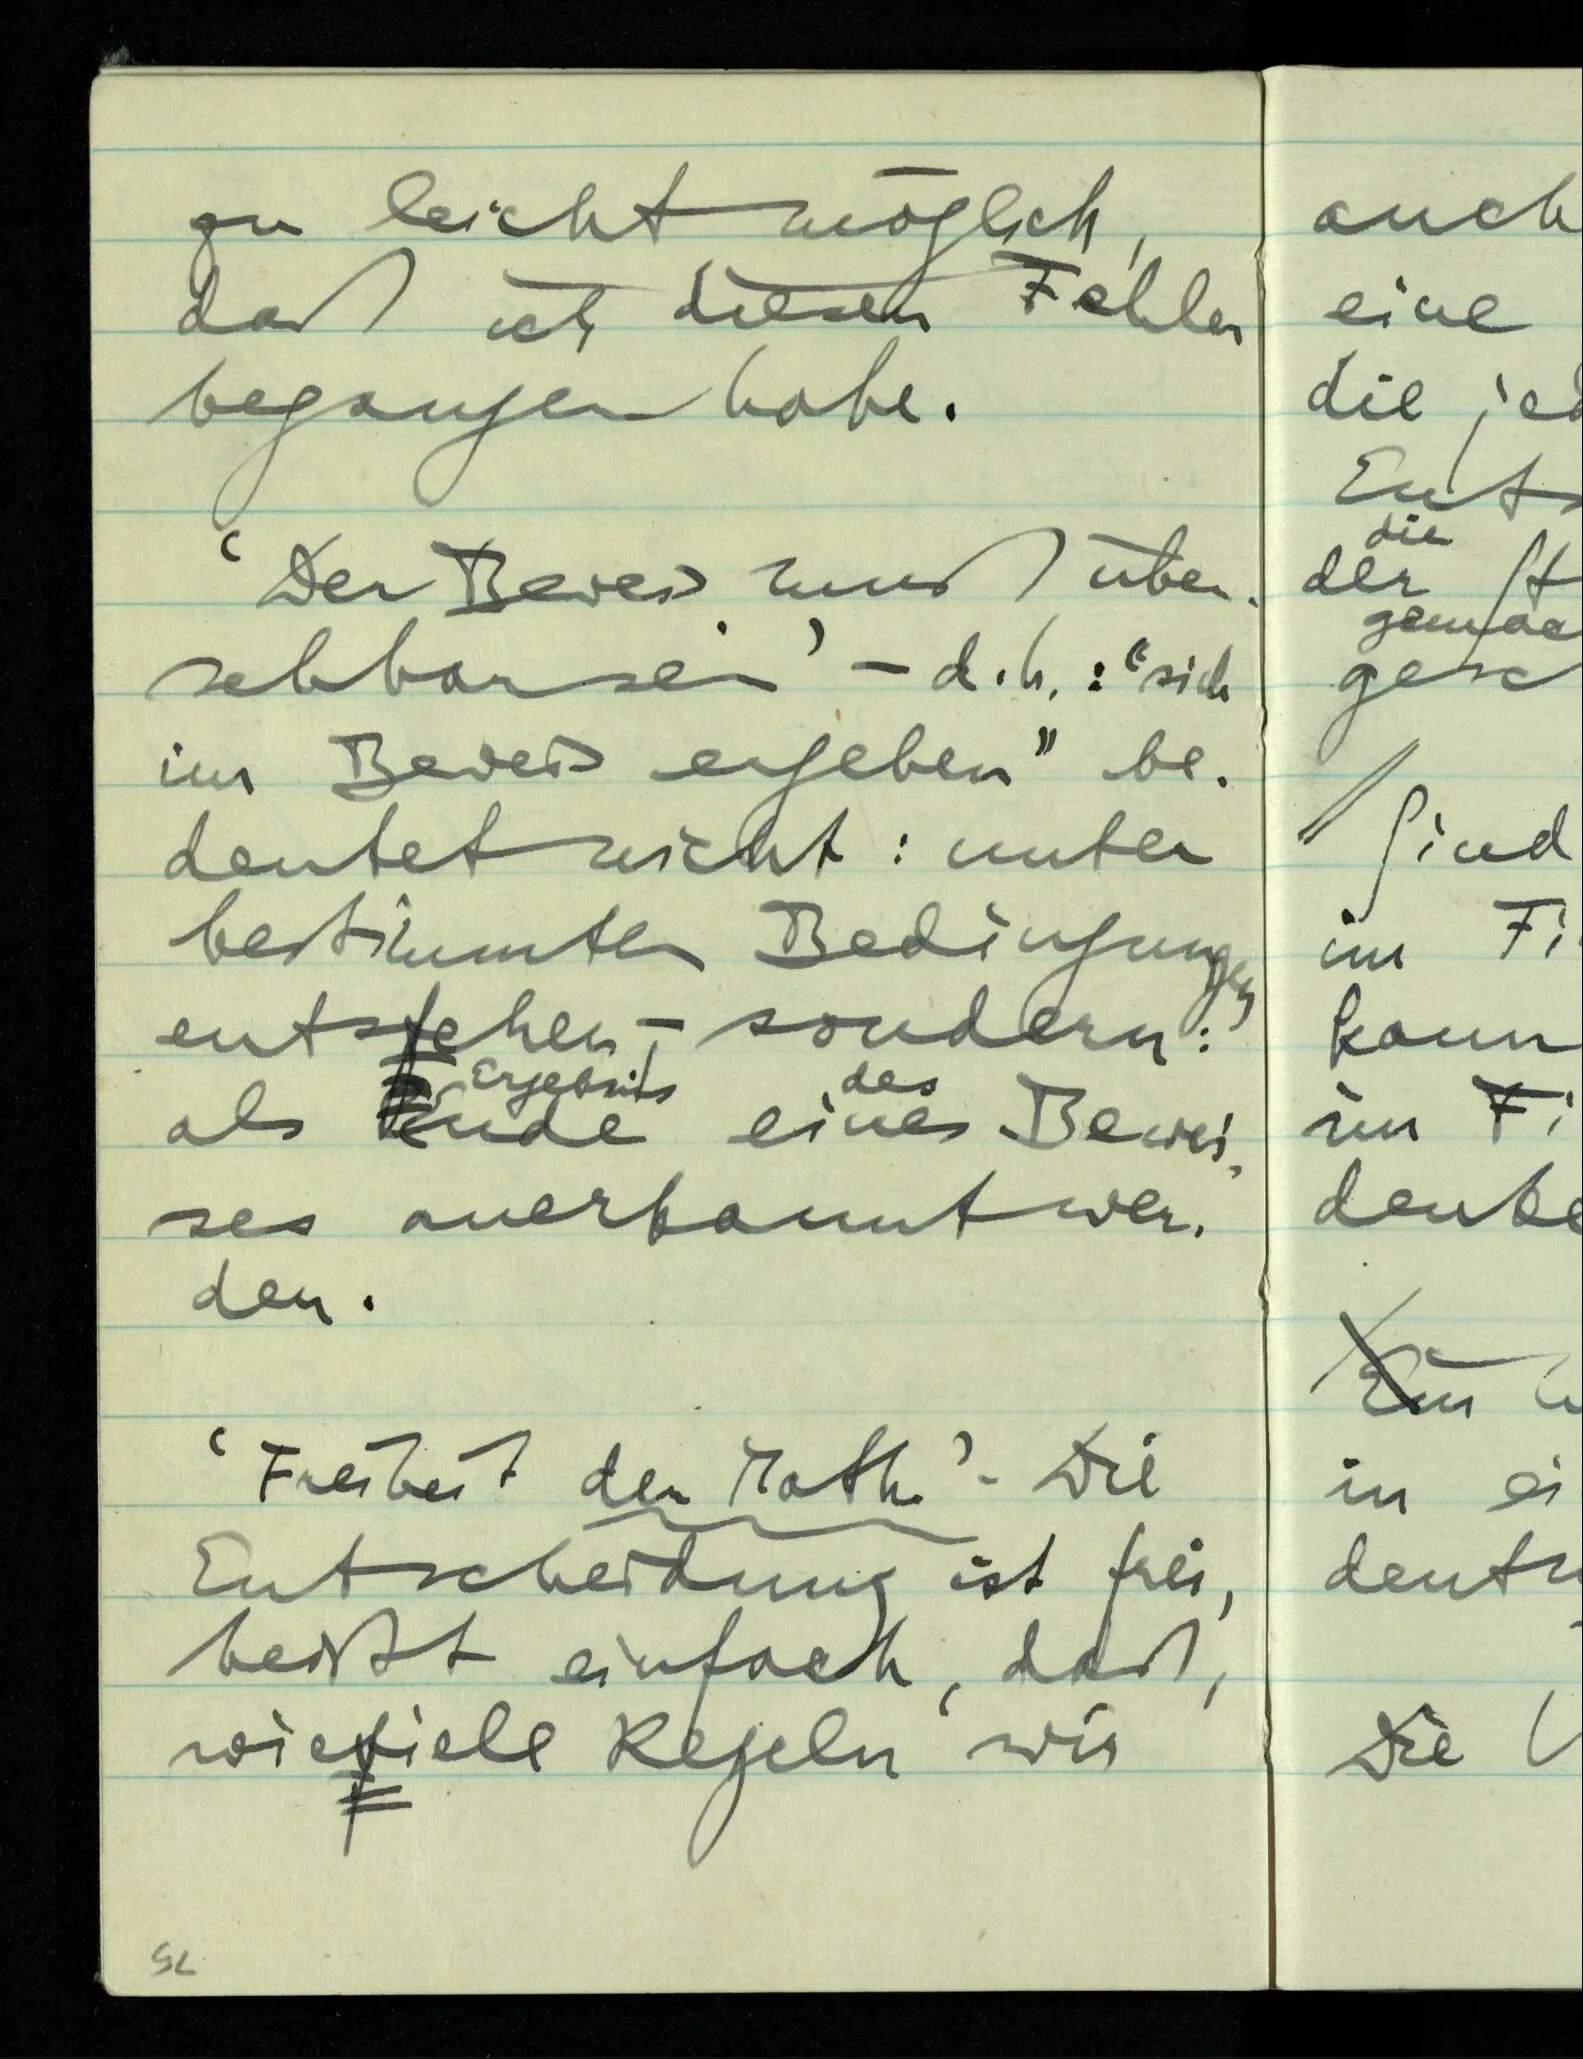 zu leicht möglich,
daß ich diesen Fehler
begangen habe.
‘Der Beweis muß über-
sehbar sein’ – d.h.: “sich
im Beweis ergeben” be-
deutet nicht: unter
bestimmten Bedingungen
entstehen, – sondern:
Ergebnis des
als Ende eines Bewei-
ses anerkannt wer-
den.
‘Freiheit der Math.’ - Die
Entscheidung ist frei,
heißt einfach, daß,
wieviele Regeln wir
52
auch
eine
die
die
der
im
kann
im
Ein
in
Die